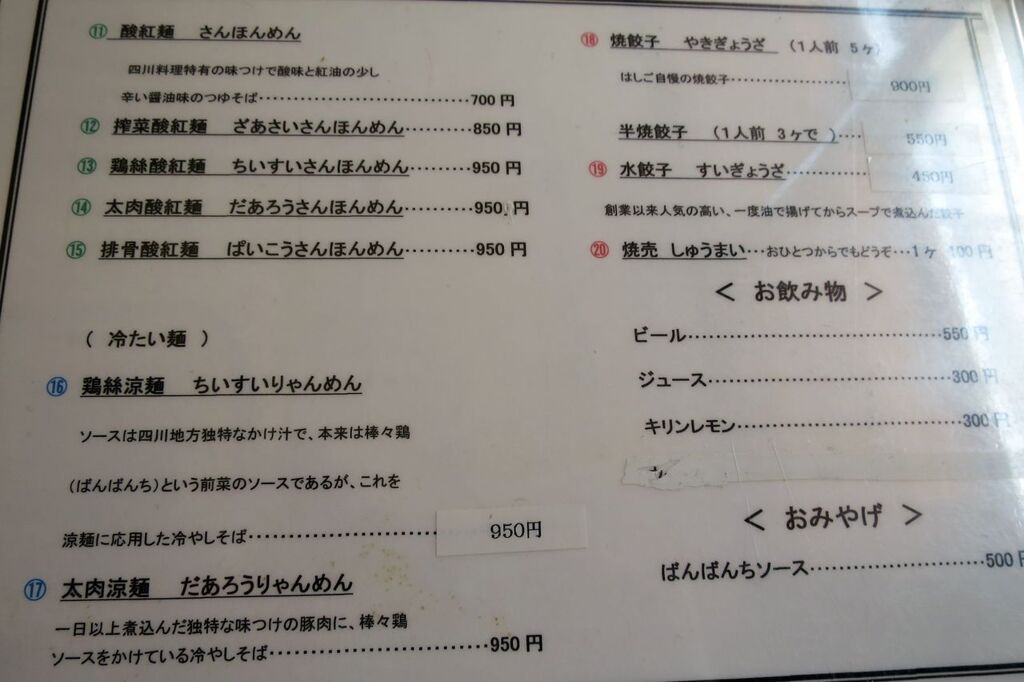 ⑪ 酸紅麺 さんほんめん
四川料理特有の味つけで酸味と紅油の少し
辛い醤油味のつゆそば‥‥‥‥‥‥‥‥‥‥‥700 円
⑫ 搾菜酸紅麺 ざあさいさんほんめん‥‥‥850 円
⑬ 鶏絲酸紅麺 ちいすいさんほんめん‥‥‥950 円
⑭ 太肉酸紅麺 だあろうさんほんめん‥‥‥950 円
⑮ 排骨酸紅麺 ぱいこうさんほんめん‥‥‥950 円
( 冷たい麺 )
⑯ 鶏絲涼麺 ちいすいりゃんめん
ソースは四川地方独特なかけ汁で、本来は棒々鶏
(ばんばんち)という前菜のソースであるが、これを
涼麺に応用した冷やしそば‥‥‥‥‥‥‥‥950円
⑰ 太肉涼麺 だあろうりゃんめん
一日以上煮込んだ独特な味つけの豚肉に、棒々鶏
ソースをかけている冷やしそば‥‥‥‥‥‥‥950 円
⑱ 焼餃子 やきぎょうざ (1人前 5ヶ)
はしご自慢の焼餃子‥‥‥‥‥‥900円
半焼餃子 (1人前 3ヶで )‥‥550円
⑲ 水餃子 すいぎょうざ‥‥‥‥450円
創業以来人気の高い、一度油で揚げてからスープで煮込んだ餃子
⑳ 焼売 しゅうまい‥‥おひとつからでもどうぞ‥‥1ヶ 100 円
< お飲み物 >
ビール‥‥‥‥‥‥‥‥‥‥‥‥550 円
ジュース‥‥‥‥‥‥‥‥‥‥‥300 円
キリンレモン‥‥‥‥‥‥‥‥‥300 円
< おみやげ >
ばんばんちソース‥‥‥‥‥‥‥500 円